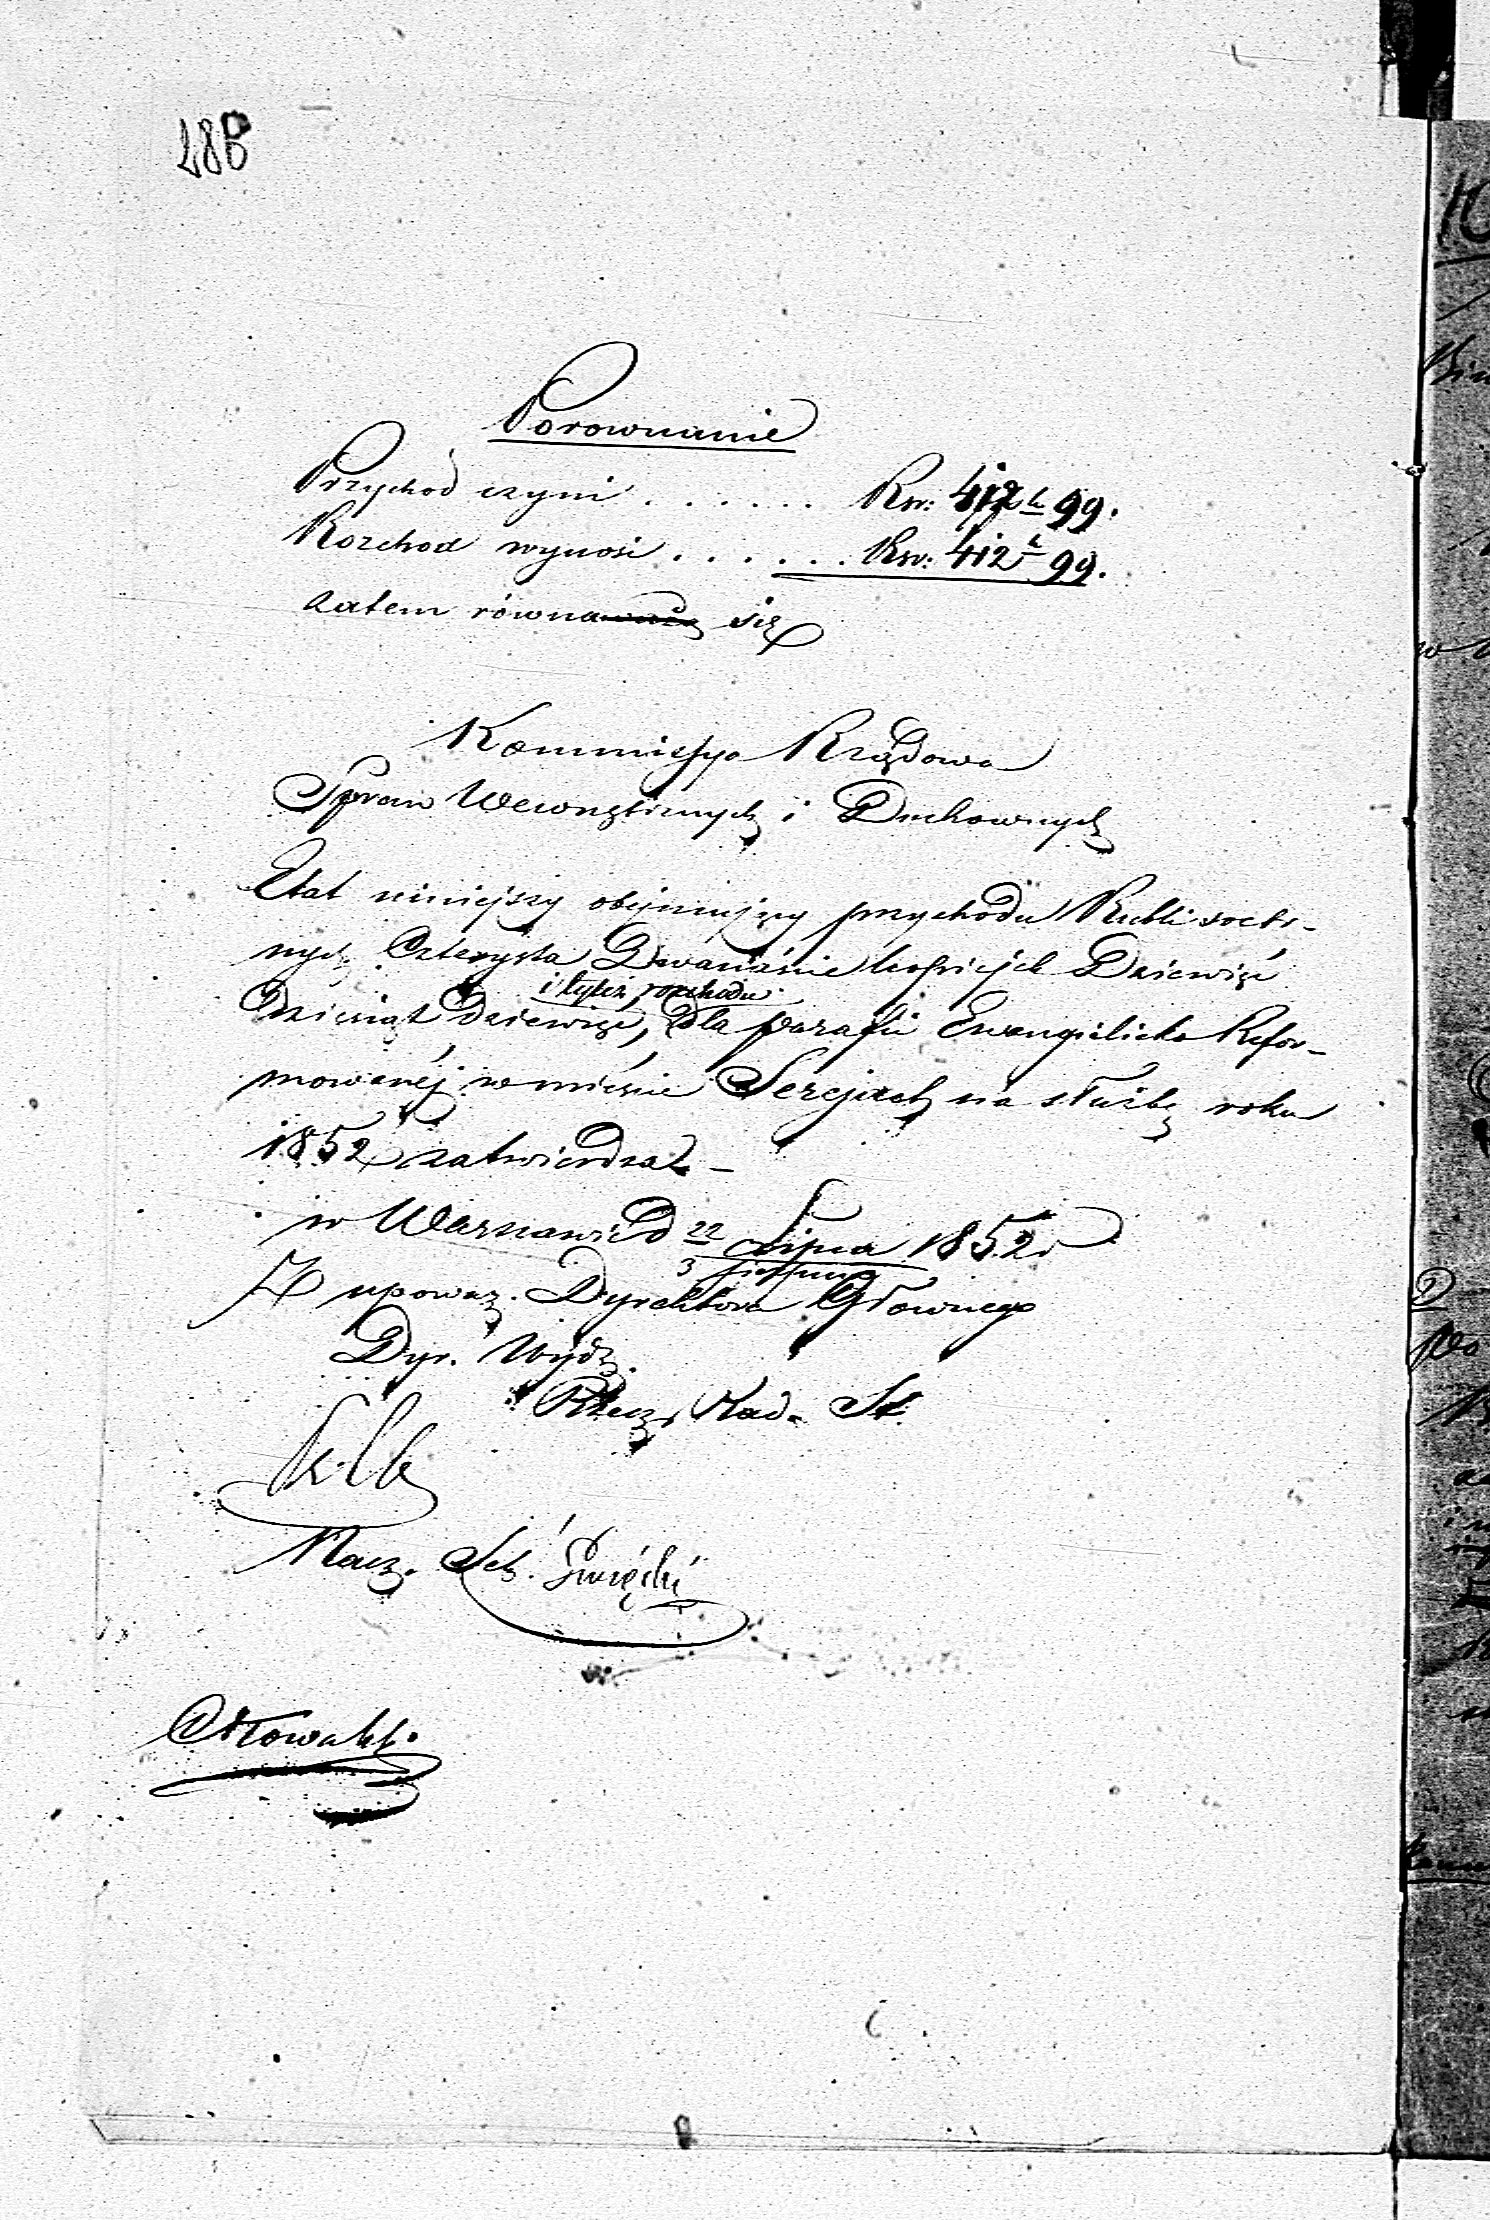 Porownanie
Przychód czyni . . . . . . Rsr: 412 k 99.
Rozchod wynosi . . . . . . Rsr: 412 k 99.
zatem równa się
Kommissya Rządowa
Spraw Wewnętrznych i Duchownych
Etat niniejszy obejmujący przychodu Rubli srebr-
nych Czterysta Dwanaście kopiejek Dziewięć
i tyleż rozchodu
Dziesiąt Dziewięć, dla parafii Ewangielicko Refor-
mowanéj w mieście Serejach na służbę roku
1852 zatwierdza –
w Warszawie d 22 Lipca 1852 r
3 Sierpnia
Z upoważ. Dyrektora Głownego
Dyr. Wydz.
Rzecz. Rad. St.
Nacz. Sek.